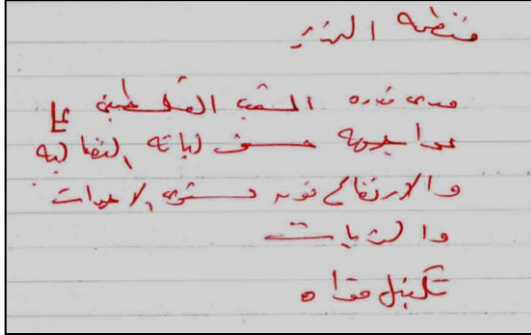 منظمة التحرير
مدى قدرة الشعب الفلسطيني على
مواجهة مسؤولياته النضالية
والارتفاع فوق مستوى الاحداث
والتحديات
تكتيل قواه